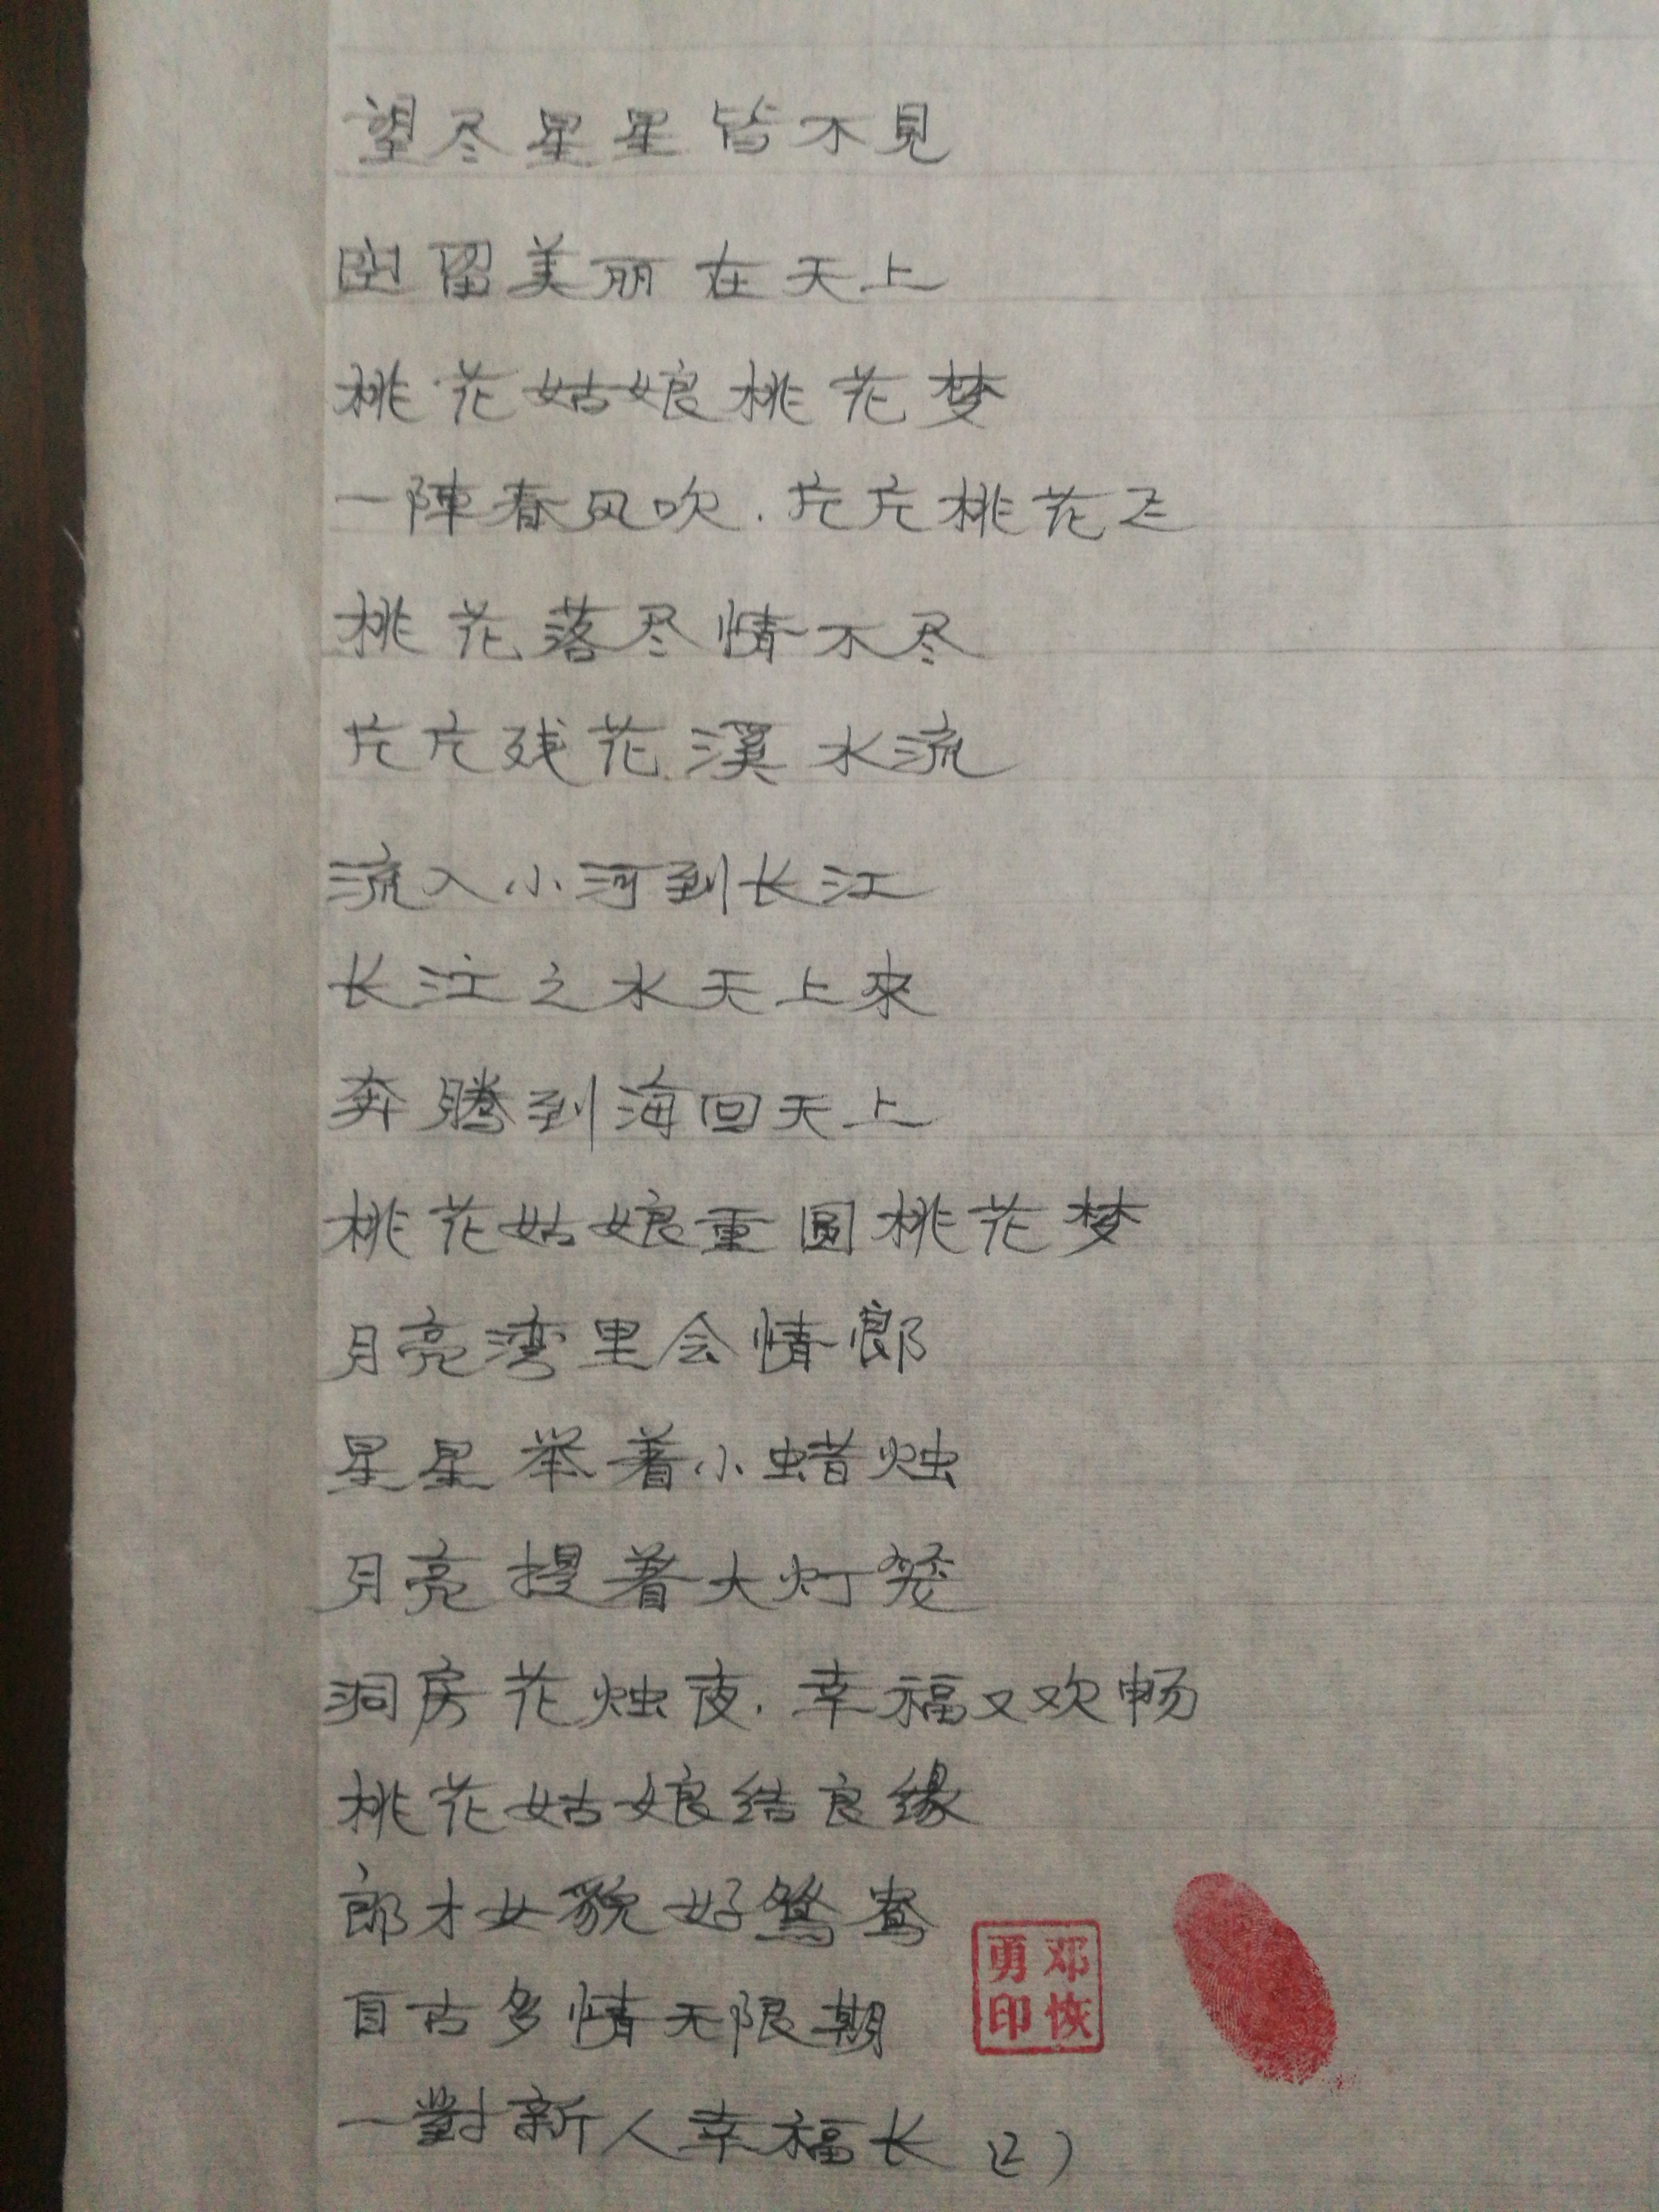 望尽星星皆不見
空留美丽在天上
桃花姑娘桃花梦
一陣春风吹.片片桃花飞
桃花落尽情不尽
片片残花溪水流
流入小河到长江
长江之水天上來
奔腾到海回天上
桃花姑娘重圆桃花梦
月亮湾里会情郎
星星举着小蜡烛
月亮提着大灯笼
洞房花烛夜.幸福又欢畅
桃花姑娘结良缘
郎才女貌好鸳鸯
自古多情无限期
一對新人幸福长 (2)
邓恢勇印